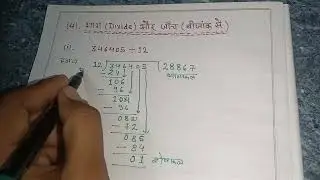 (4). भाग (Divide) और जाँच (बीजांक से)
(1). 346405 ÷ 12
हल→ 12) 346405 ( 28867
- 24 भागफल
106
- 96
104
- 96
080
- 72
085
- 84
01 शेषफल